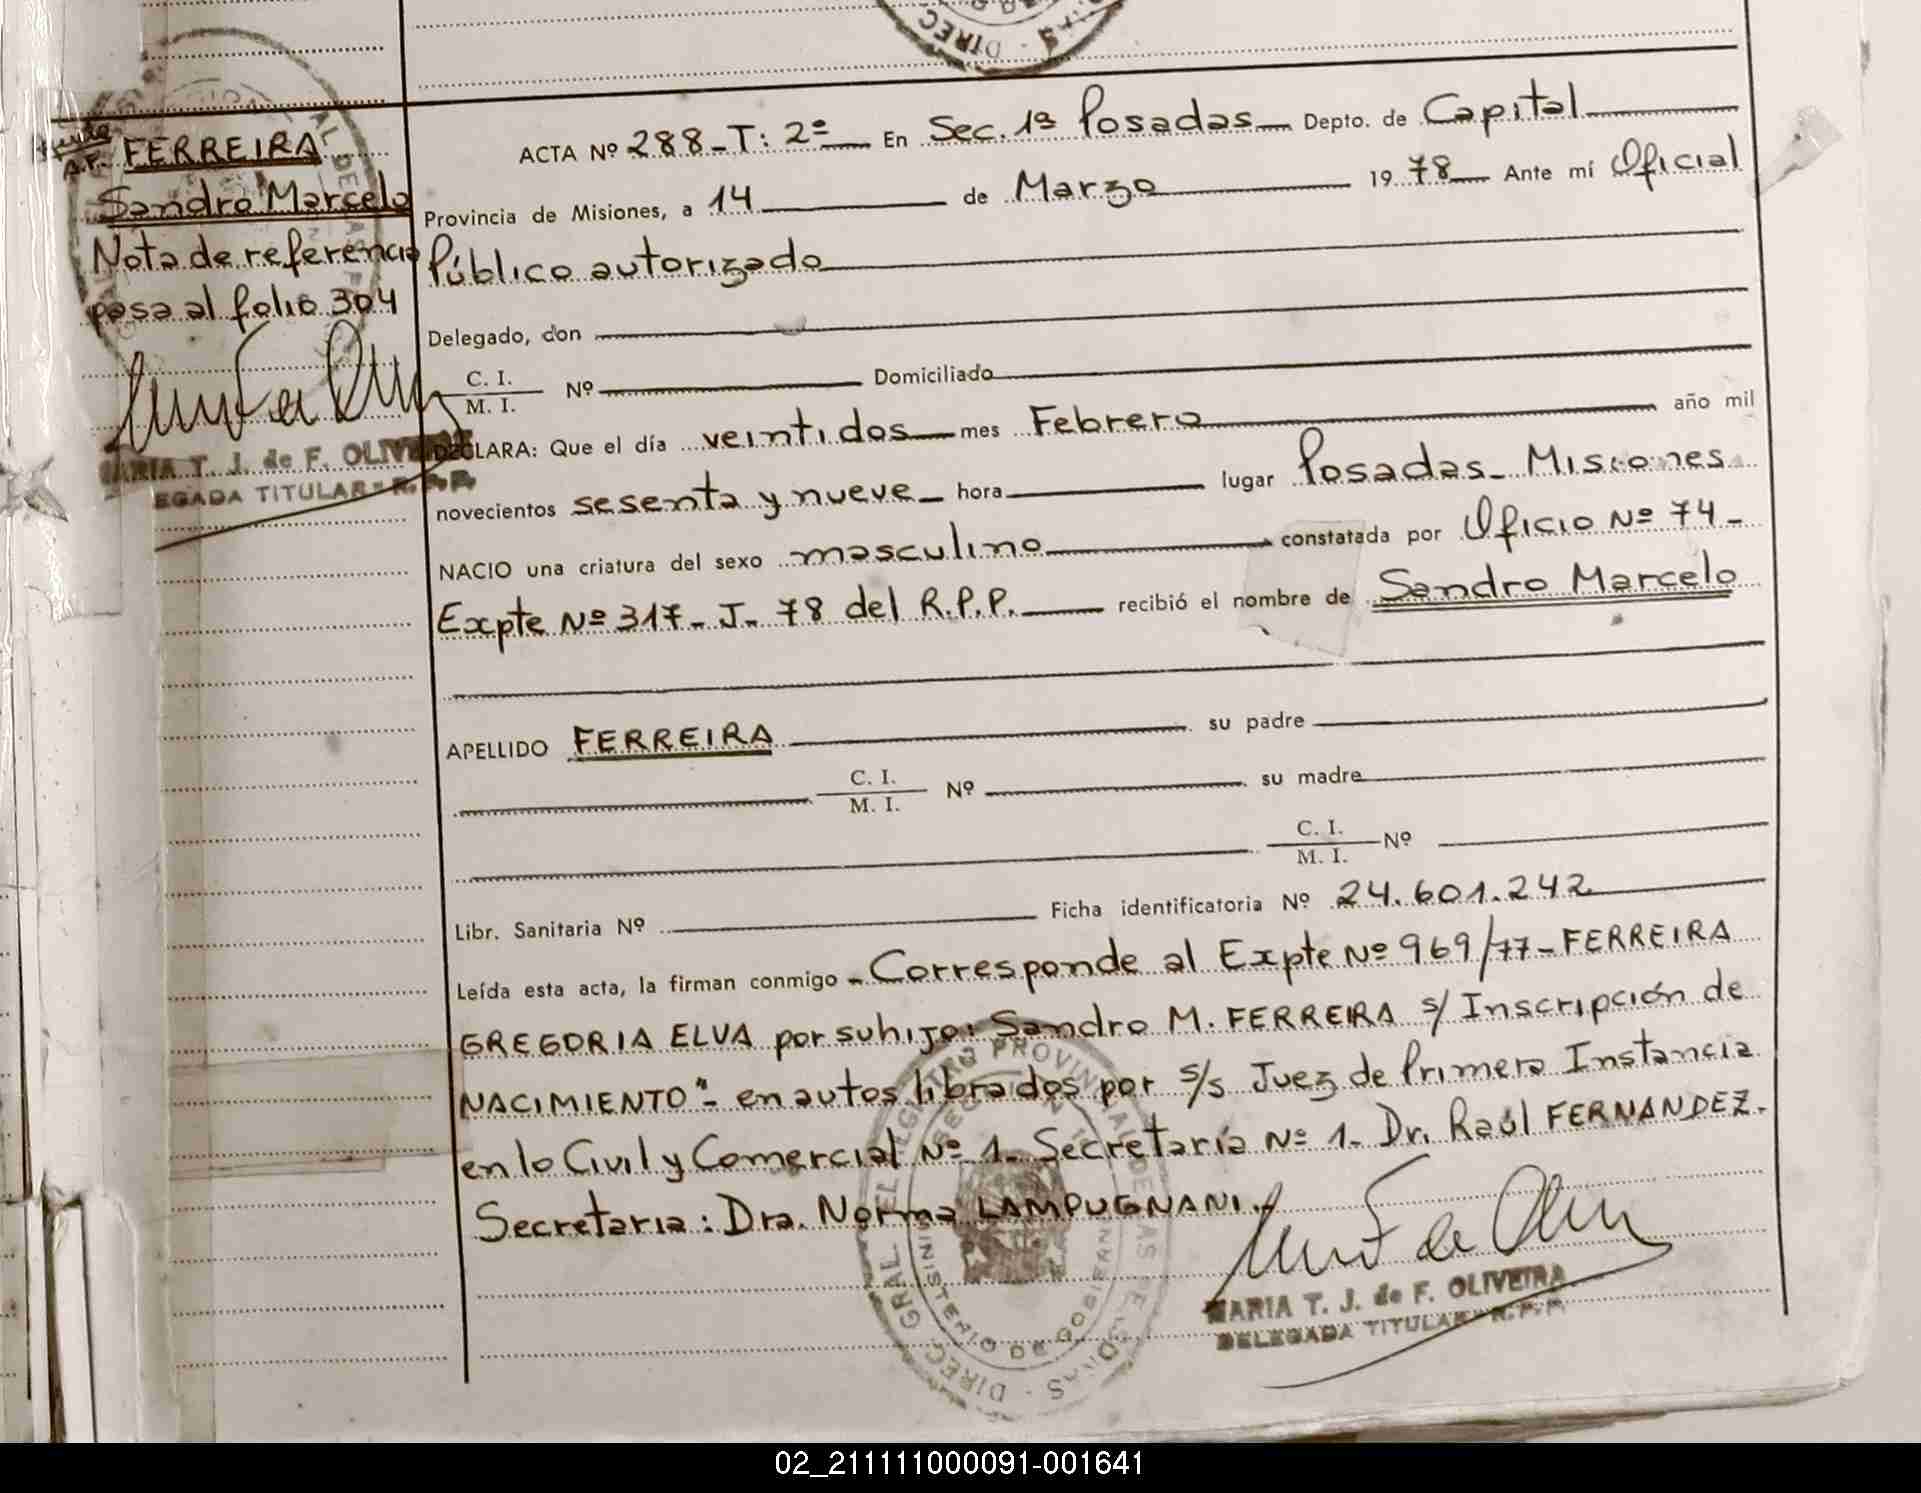 FERREIRA
Sandro Marcelo
Nota de referencia
pasa al folio 304
MARIA T. J. de F. OLIVEIRA
DELEGADA TITULAR - R.P.P.
ACTA Nº 288 - T: 2º En Sec. 1ª Posadas Depto. de Capital
Provincia de Misiones, a 14 de Marzo 1978 Ante mí Oficial
Público autorizado
Delegado, don
C. I.
M. I. Nº Domiciliado
DECLARA: Que el día veintidos mes Febrero año mil
novecientos sesenta y nueve hora lugar Posadas - Misiones
NACIO una criatura del sexo masculino constatada por Oficio Nº 74 -
Expte Nº 317 - J - 78 del R.P.P. recibió el nombre de Sandro Marcelo
APELLIDO FERREIRA su padre
C. I.
M. I. Nº su madre
C. I.
M. I. Nº
Libr. Sanitaria Nº Ficha identificatoria Nº 24.601.242
Leída esta acta, la firman conmigo - Corresponde al Expte Nº 969/77 - FERREIRA
GREGORIA ELVA por su hijo: Sandro M. FERREIRA s/ Inscripción de
NACIMIENTO" - en autos librados por s/s Juez de Primera Instancia
en lo Civil y Comercial Nº 1 - Secretaría Nº 1 - Dr. Raúl FERNANDEZ -
Secretaria: Dra. Norma LAMPUGNANI.
MARIA T. J. de F. OLIVEIRA
DELEGADA TITULAR - R.P.P.
02_211111000091-001641